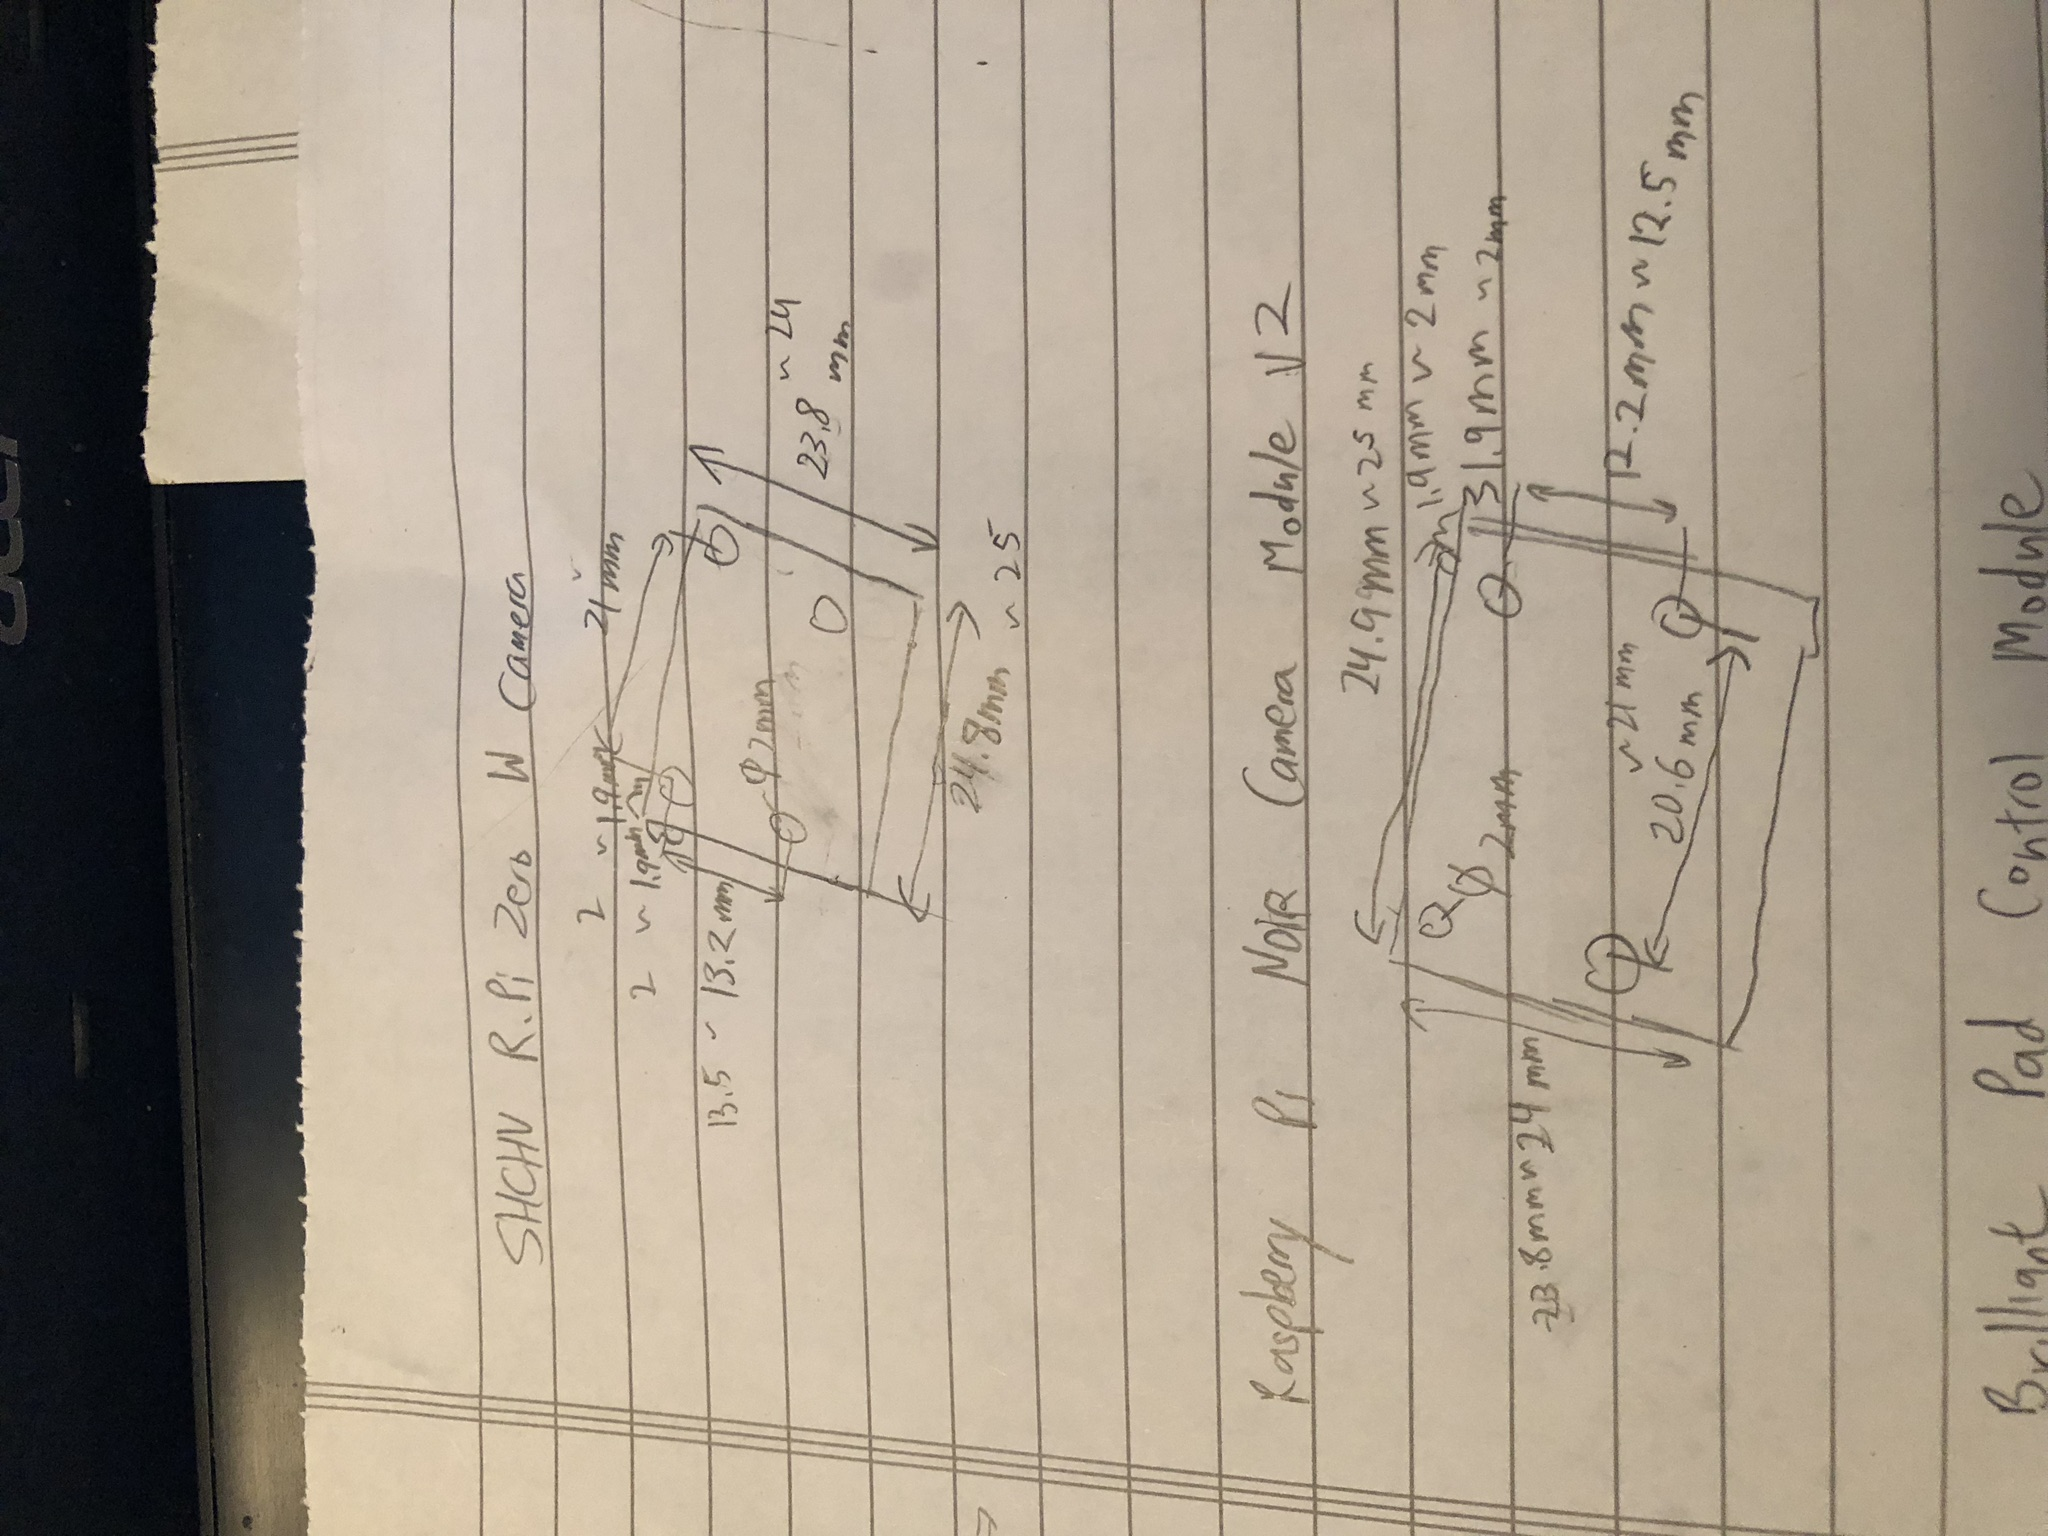 SHCHV R.Pi Zero W Camera
~ 21mm
2 ~ 1.9mm
2 ~ 1.9mm
13.5 ~ 13.2mm
φ2mm
~ 24
23.8 mm
24.8mm ~ 25
Raspberry Pi NOIR Camera Module V2
24.9mm ~ 25mm
1.9mm ~ 2mm
1.9mm ~ 2mm
φ 2mm
23.8mm ~ 24mm
12.2mm ~ 12.5mm
~ 21mm
20.6mm
Brilliant Pad Control Module